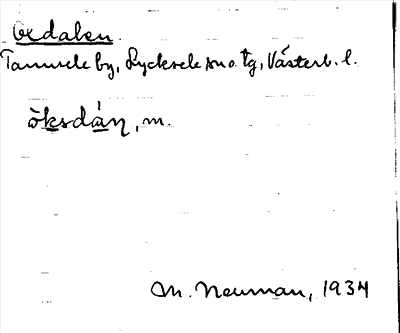 Oxdalen.
Tannsele by, Lycksele sn o. tg, Västerb. l.
òksdán, m.
M. Neuman, 1934